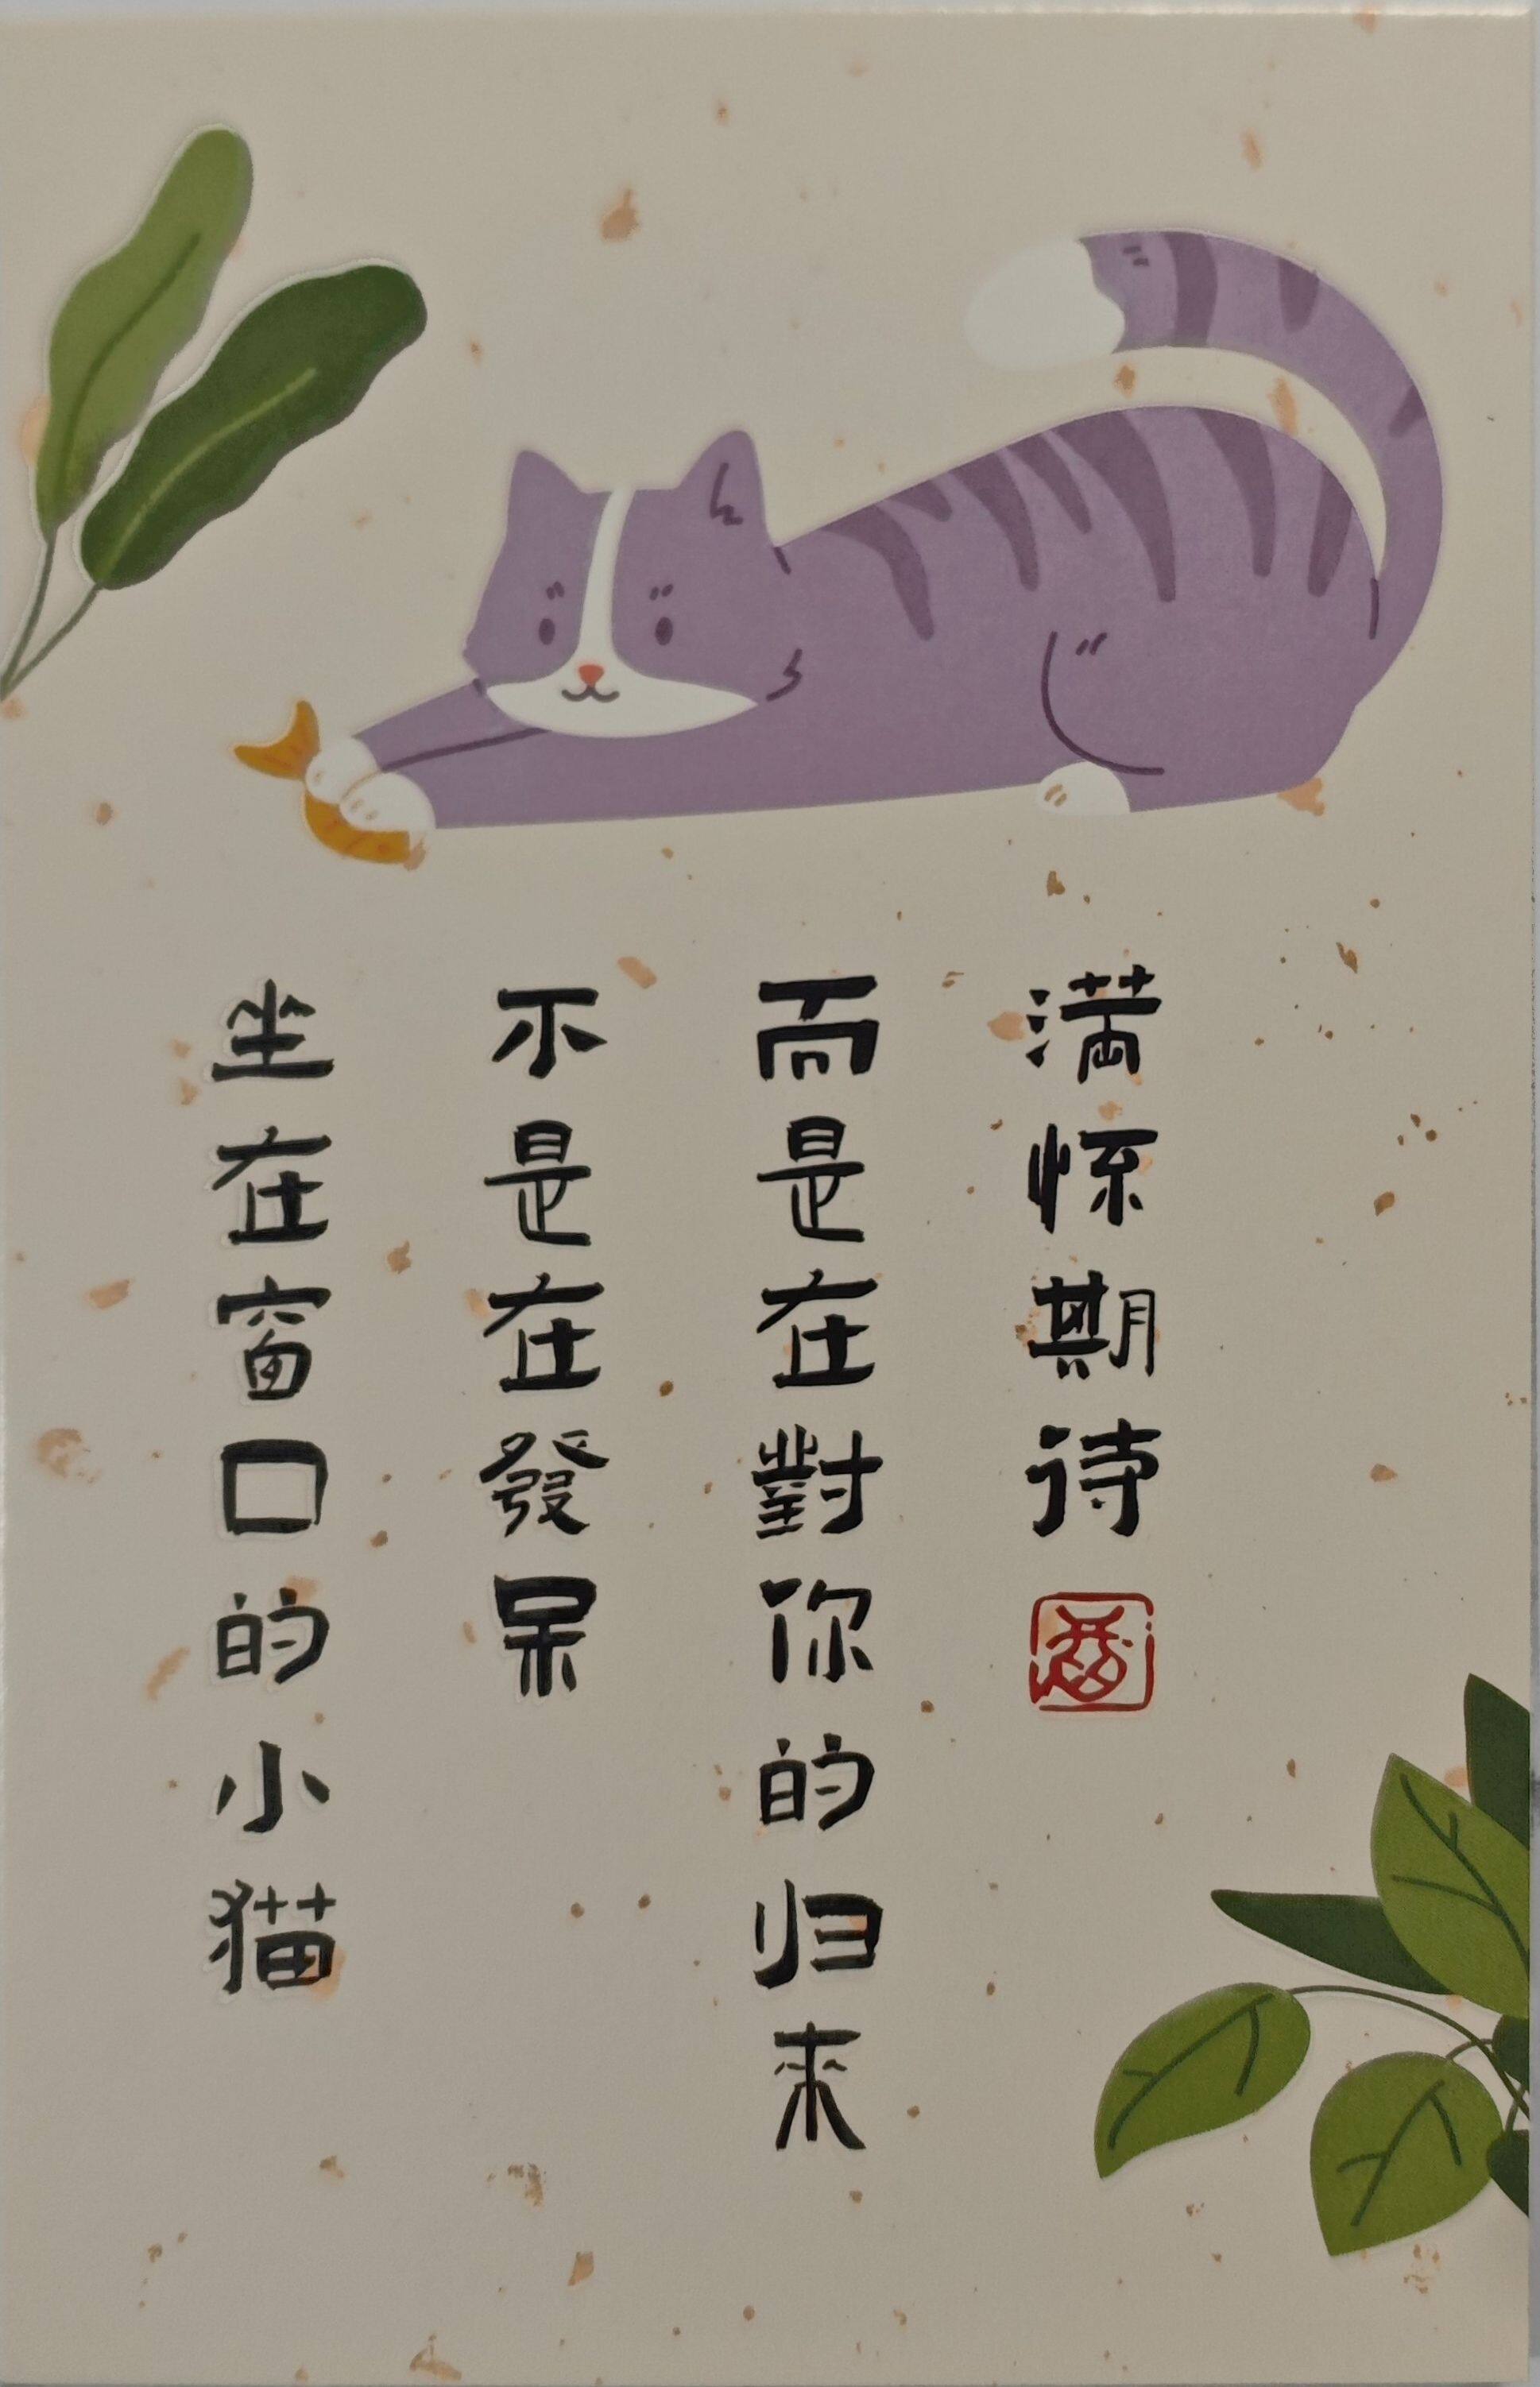 坐在窗口的小猫
不是在發呆
而是在對你的归来
满怀期待